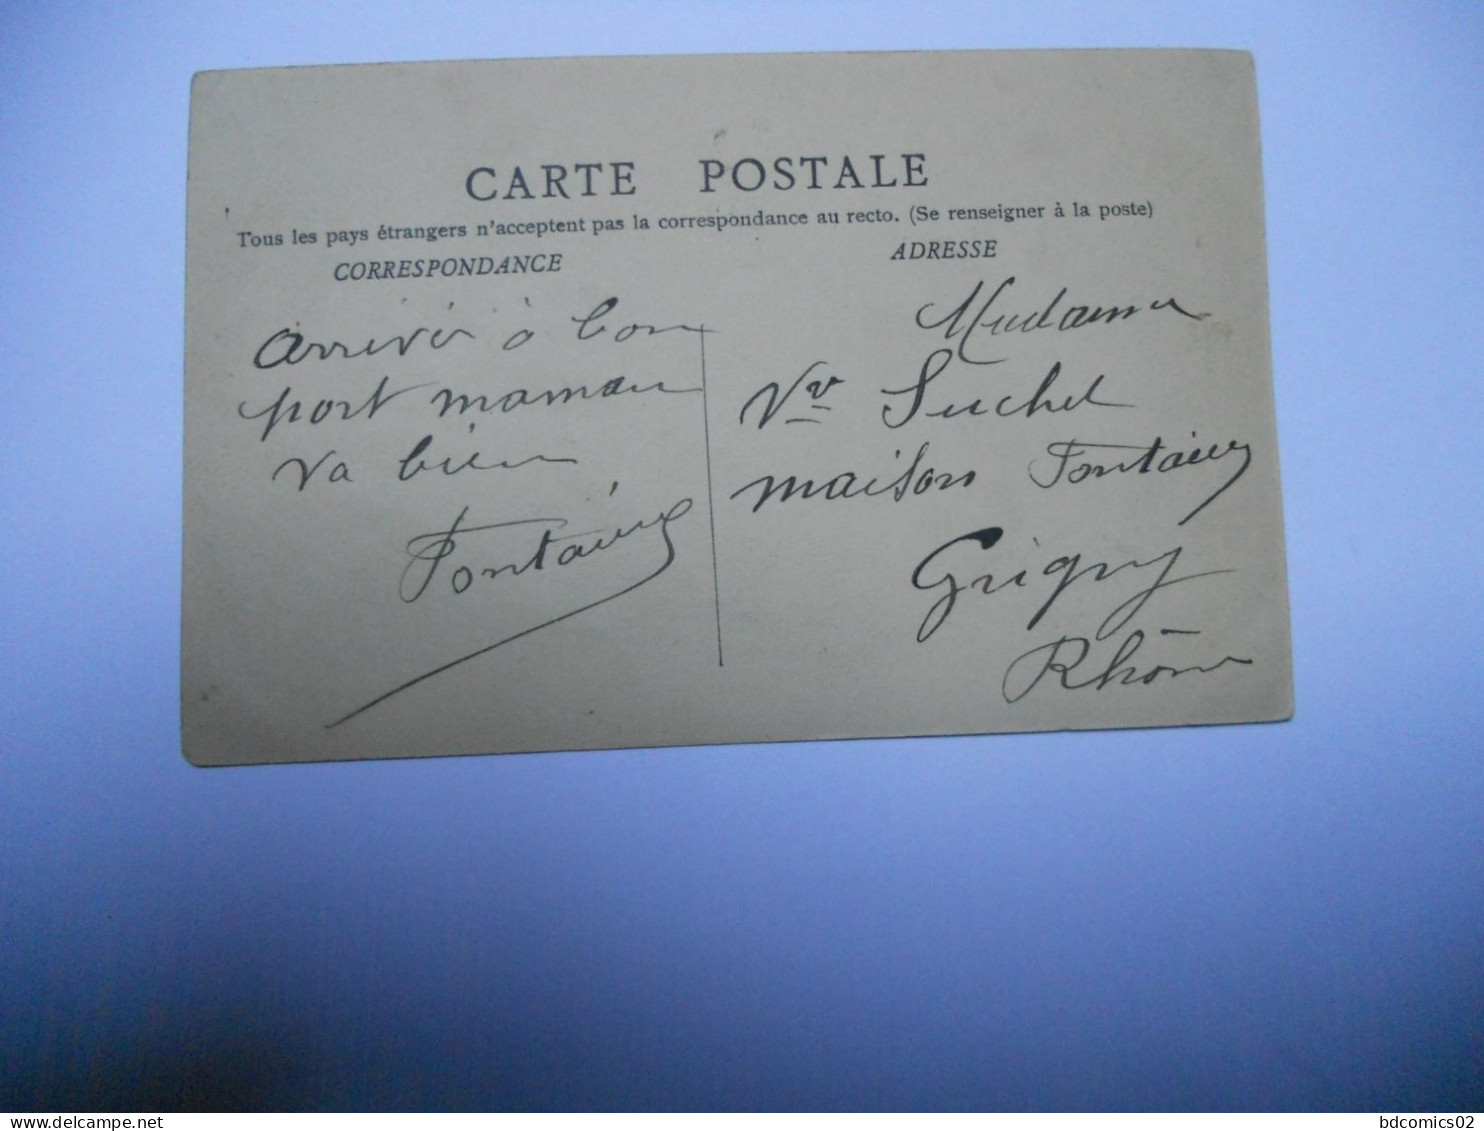 CARTE POSTALE
Tous les pays étrangers n'acceptent pas la correspondance au recto. (Se renseigner à la poste)
CORRESPONDANCE
arrivér à bon
port maman
va bien
Fontaine
ADRESSE
Madame
Vve Suchel
maison Fontaine
Grigny
Rhône
bdcomics02